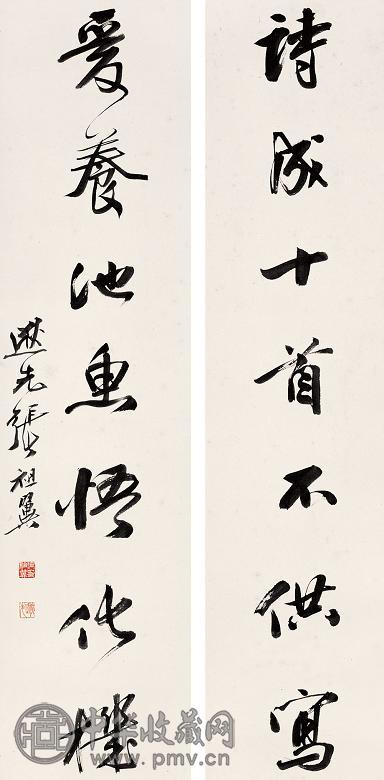 詩成十首不供寫
愛養池魚悟化機
逖先張祖翼
中华收藏网
www.pmv.cn